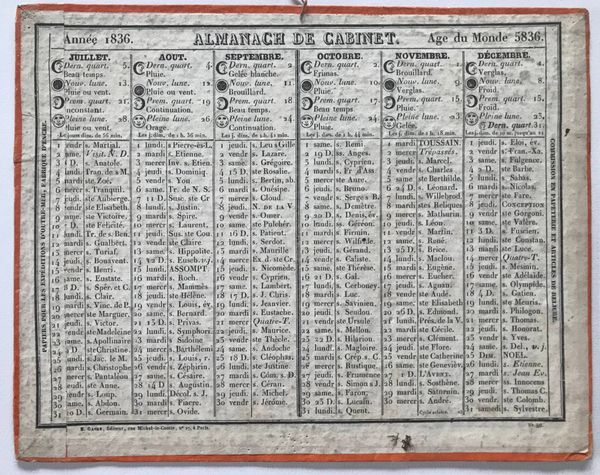 Année 1836.
ALMANACH DE CABINET.
Age du Monde 5836.
JUILLET.
Dern. quart. 5.
Beau temps.
Nouv. lune. 13.
Pluie ou vent.
Prem. quart. 21.
Inconstant.
Pleine lune 28
Pluie ou vent.
AOUT.
Dern. quart. 4.
Pluie.
Nouv. lune. 12.
Pluie ou vent.
Prem. quart. 19
Continuation.
Pleine lune 26
Orage.
SEPTEMBRE.
Dern. quart. 2.
Gelée blanche.
Nouv. lune. 11.
Brouillard.
Prem. quart 18
Beau temps.
Pleine lune 24.
Continuation.
OCTOBRE.
Dern. quart. 2.
Frimas.
Nouv. lune 10.
Brouillard.
Prem. quart. 17.
Beau temps.
Pleine lune 24.
Pluie.
NOVEMBRE.
Dern. quart. 1.
Brouillard.
Nouv. lune 9.
Verglas.
Prem. quart 15.
Pluie.
Pleine lune 23.
Gelée.
DÉCEMBRE.
Dern. quart. 1.
Verglas.
Nouv. lune 8.
Froid.
Prem. quart. 15.
Froid.
Pleine lune 23,
Dern. quart. 31
1 vendr s. Martial.
3 D. s. Anatole.
5 mardi ste. Zoé.
6 mercr s. Tranquil.
8 vendr ste Elisabeth.
9 same. ste Victoire.
10 D. ste Félicité.
12 mardi s. Gualbert.
13 mercr s. Turiaf.
14 jeudi. s. Bonavent.
15 vendr s. Henri.
16 same. s. Eustate.
18 lundi. s. Clair.
19 mardi s. Vinc. de P.
20 mercr ste Marguer.
21 jeudi. s. Victor.
22 vendr ste Madeleine
23 same. s. Apollinaire
24 D ste Christine.
25 lundi. s. Jac. le M.
26 mardi s. Christophe
27 mercr s. Pantaléon
28 jeudi. ste Anne.
29 vendr s. Loup.
30 same. s. Abdon.
31 D s. Germain.
1 lundi s Pierre-ès-L.
2 mardi s. Etienne.
3 mercr Inv. s. Etien
4 jeudi s. Dominiq.
5 vendr s. Yon
6 same. Tr. de N. S.
8 lundi. s. Justin.
9 mardi s. Spire.
10 mercr s. Laurent.
11 jeudi. Sus. ste Cou
12 vendr ste Claire
13 same. s. Hippolite.
15 lundi. ASSOMPT
16 mardi s. Roch.
17 mercr s. Mammès.
18 jeudi. ste Hélène.
19 vendr s. Louis, év.
20 same. s. Bernard.
21 D s. Privas.
22 lundi. s. Symphori.
23 mardi s. Sidoine
24 mercr s. Barthélemi
25 jeudi. s. Louis, r.
26 vendr s. Zéphirin.
27 same. s. Césaire.
28 D s. Augustin.
29 lundi. Décol. s. J.
30 mardi s. Fiacre.
31 mercr s. Ovide.
1 jeudi. s. Leu s Gille
2 vendr s. Lazare.
3 same. s. Grégoire.
4 D ste Rosalie.
5 lundi. s. Bertin, ab.
6 mardi s. Onésipe.
7 mercr s. Cloud.
9 vendr s. Omer.
10 same. ste Pulchér.
11 D. s. Patient.
12 lundi. s. Serdot.
13 mardi s. Maurille
14 mercr Ex. d ste Cr.
15 jeudi. s. Nicomède.
16 vendr s. Cyprien.
17 same. s. Lambert.
18 D. s. J. Chris
19 lundi. s. Janvier.
20 mardi s. Eustache.
21 mercr Quatre-T.
22 jeudi. s. Maurice.
23 vendr ste Thècle.
24 same. s. Andoche
25 D. s. Cléophas.
26 lundi. ste Justine.
27 mardi s. Côm. s. D.
28 mercr s. Céran.
29 jeudi. s. Michel.
30 vendr s. Jérôme.
1 same. s. Remi.
2 D. ss. Anges.
3 lundi. s. Cyprien.
4 mardi s. Fr d'Ass
5 mercr ste Aure.
6 jeudi. s. Bruno.
7 vendr s. Serges s B
8 same. s. Demètre.
9 D. s. Denis, év.
10 lundi. s. Géréon.
11 mardi s. Firmin.
12 mercr s. Wilfride.
13 jeudi. s. Géraud.
14 vendr s. Caliste.
15 same. ste Thérèse.
16 D. s. Gal.
17 lundi. s. Cerboney.
18 mardi s. Luc.
19 mercr s. Savinien.
20 jeudi. s. Sendou.
21 vendr ste Ursule.
22 same. s. Mellon.
23 D. s. Hilarion.
24 lundi. s. Magloire.
25 mardi s. Crép. s. C.
26 mercr s. Rustique.
27 jeudi. s. Frumence
28 vendr s. Simon s J.
29 same. s. Faron.
30 D. s. Lucain.
31 lundi. s. Quent.
1 mardi TOUSSAIN.
2 mercr Trépassés.
3 jeudi. s. Marcel.
4 vendr s. Charles
5 same. ste Berthilde,
6 D. s. Léonard.
7 lundi. s. Willebrod
8 mardi stes Reliques
9 mercr s. Mathurin
10 jeudi. s. Léon.
11 vendr s. Martin.
12 same. s. René.
13 D. s. Brice.
14 lundi. s. Maclou.
15 mardi s. Eugène.
16 mercr s. Eucher.
17 jeudi. s. Agnan.
18 vendr ste Aude.
19 same. ste Elisabeth
20 D. s. Edmond.
21 lundi. Prés. de la V
22 mardi ste Cécile.
23 mercr s. Clément.
24 jeudi. ste Flore.
25 vendr ste Catherine
26 same. ste Geneviève,
27 D L'AVENT.
28 lundi. s. Sosthène.
29 mardi s. Saturnin.
30 mercr s. André.
1 jeudi. s. Eloi, év.
2 vendr s. Fran.-Xa.
3 same. s. Fulgence.
4 D. ste Barbe.
5 lundi. s. Sabas.
6 mardi s. Nicolas.
7 mercr ste Fare.
8 jeudi. CONCEPTION
9 vendr ste Gorgoni.
10 same. ste Valère.
11 D. s. Fuscien.
12 lundi. ste Constan.
13 mardi ste Luce.
14 mercr Quatre-T.
15 jeudi. s. Mesmin.
16 vendr ste Adélaïde.
17 same. ste Olympide.
18 D. s. Gatien.
19 lundi. ste Meuris.
20 mardi s. Philogon.
21 mercr s. Thomas.
22 jeudi. s. Honorat.
23 vendr s. Yves.
25 DIM. NOEL.
26 lundi. s. Etienne.
27 mardi s. Jean Ev.
28 mercr ss. Innocens
29 jeudi. s. Thomas C.
30 vendr ste Colomb.
31 samedi s. Sylvestre.
PAPIERS POUR LES EXPÉDITIONS D'OUTRE-MER, FABRIQUE D'ENCRE.
COMMISSION EN PAPETERIE ET ARTICLES DE REIURE.